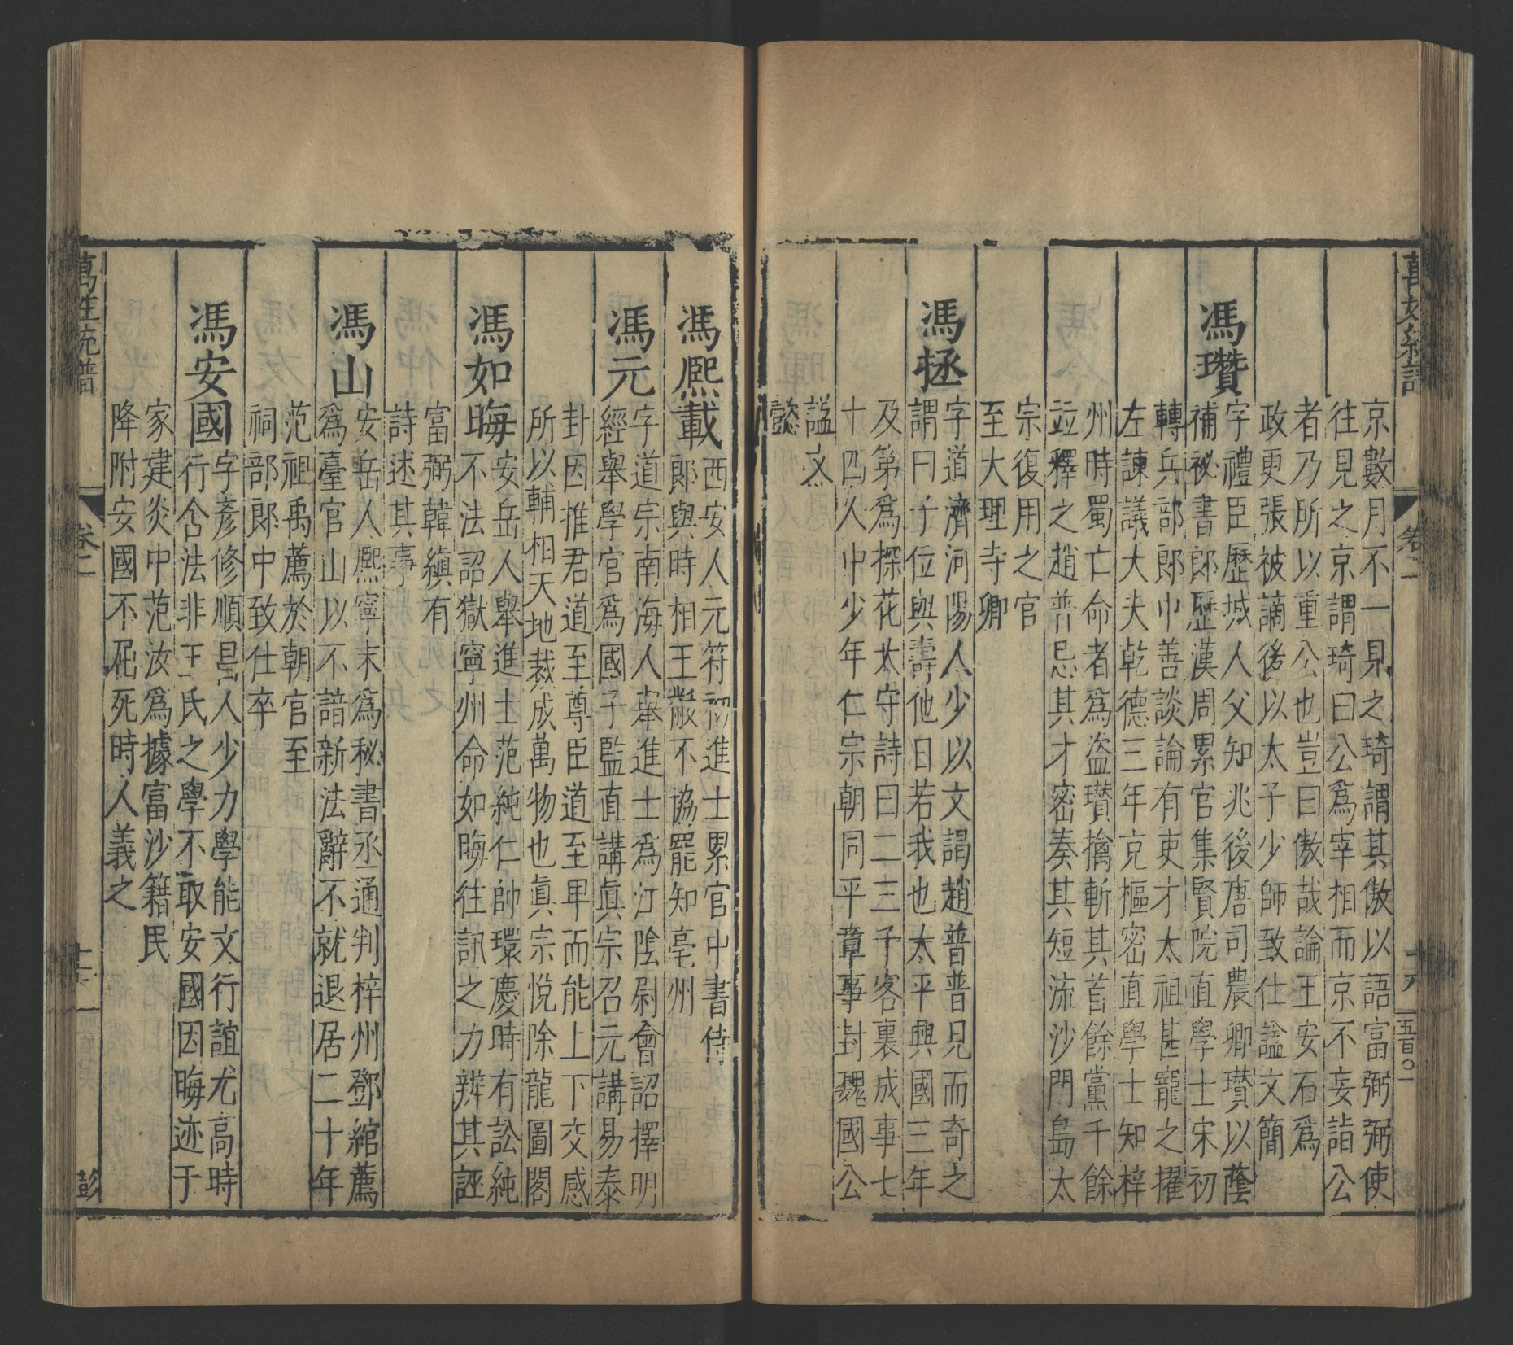 京數月不一見之琦謂其傲以語富弼弼使
往見之京謂琦曰公爲宰相而京不妄詣公
者乃所以重公也豈曰傲哉論王安石爲
政更張被謫後以太子少師致仕謚文簡
馮瓚
字禮臣歷城人父知兆後唐司農卿瓚以蔭
補祕書郎歷漢周累官集賢院直學士宋初
轉兵部郎中善談論有吏才太祖甚寵之擢
左諫議大夫乾德三年充樞密直學士知梓
州時蜀亡命者爲盜瓚擒斬其首餘黨千餘
竝釋之趙普忌其才密奏其短流沙門島太
宗復用之官
至大理寺卿
馮拯
字道濟河陽人少以文謁趙普普見而奇之
謂曰子位與壽他日若我也太平興國三年
及第爲探花太守詩曰二三千客裏成事七
十四人中少年仁宗朝同平章事封魏國公
謚文
懿
萬姓統譜
卷二
十六
五百〇一
馮熈載
西安人元符初進士累官中書侍
郎與時相王黻不協罷知亳州
馮元
字道宗南海人舉進士爲江陰尉會詔擇明
經舉學官爲國子監直講眞宗召元講易泰
卦因推君道至尊臣道至卑而能上下交感
所以輔相天地裁成萬物也眞宗悅除龍圖閣
馮如晦
安岳人舉進士范純仁帥環慶時有訟純
不法詔獄寧州命如晦往訊之力辨其誣
富弼韓縝有
詩述其事
馮山
安岳人熈寧末爲秘書丞通判梓州鄧綰薦
爲臺官山以不諳新法辭不就退居二十年
范祖禹薦於朝官至
祠部郎中致仕卒
馮安國
字彥修順昌人少力學能文行誼尤高時
行舍法非王氏之學不取安國因晦迹于
家建炎中范汝爲據富沙籍民
降附安國不屈死時人義之
萬姓統譜
卷二
彭